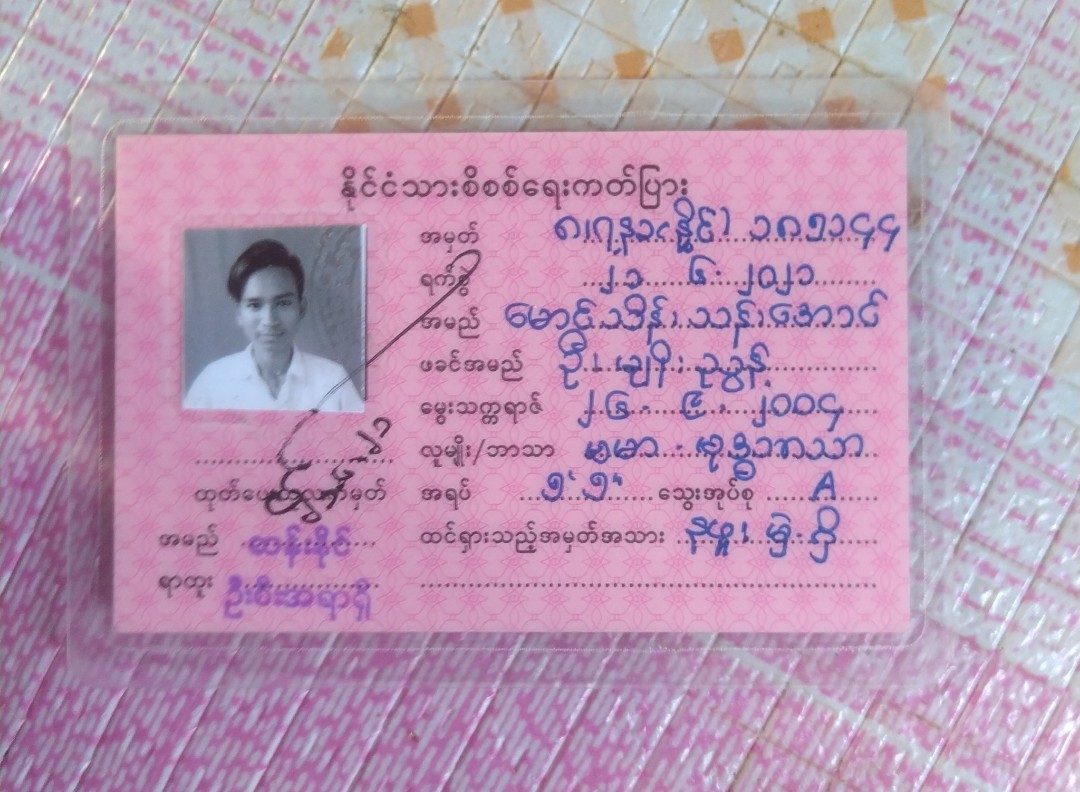 နိုင်ငံသားစိစစ်ရေးကတ်ပြား
အမှတ် ၈/ရနခ(နိုင်) ၁၈၅၁၄၄
ရက်စွဲ ၂၁ . ၆ . ၂၀၂၁
အမည် မောင် သိန်းသန်းအောင်
ဖခင်အမည် ဦး
မွေးသက္ကရာဇ် ၂၆ . ၉ . ၂၀၀၄
လူမျိုး/ဘာသာ ဗမာ - ဗုဒ္ဓဘာသာ
အရပ် ၅' ၅" သွေးအုပ်စု A
ထင်ရှားသည့်အမှတ်အသား နဖူး မှဲ့ ရှိ
ထုတ်ပေးသူလက်မှတ်
အမည် ဆန်းနိုင်
ရာထူး ဦးစီးအရာရှိ